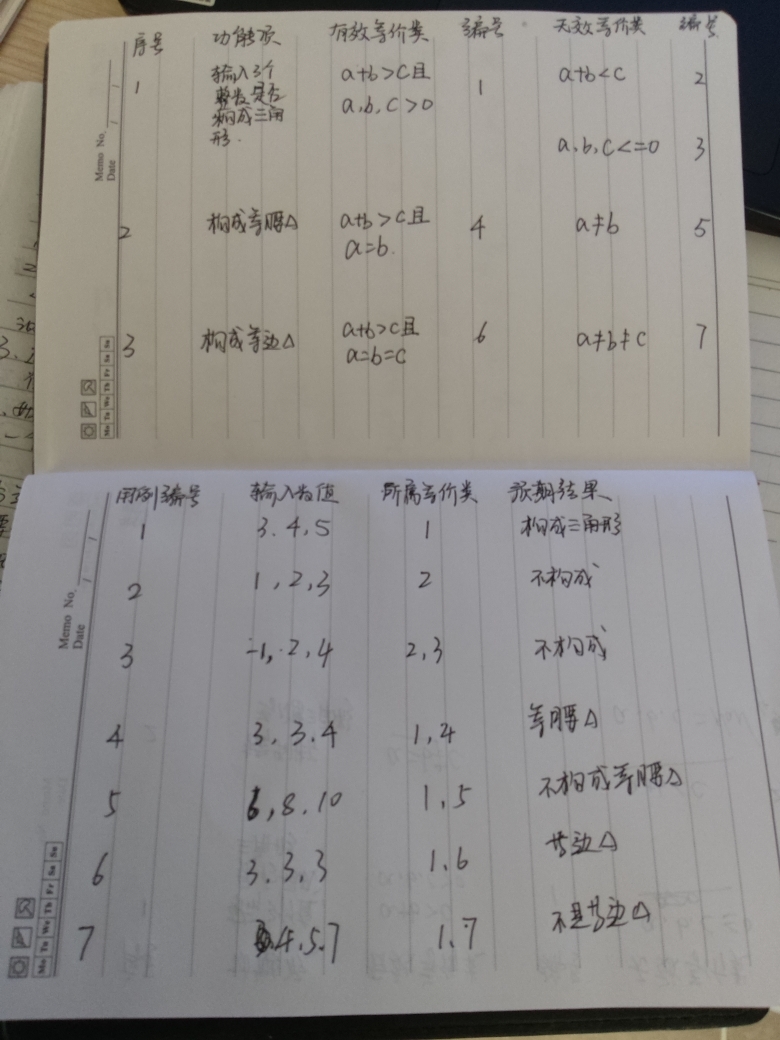 序号 功能项 有效等价类 编号 无效等价类 编号
1 输入3个 a+b>c且 1 a+b<c 2
整数是否 a,b,c>0
构成三角
形. a,b,c<=0 3
2 构成等腰△ a+b>c且 4 a≠b 5
a=b.
3 构成等边△ a+b>c且 6 a≠b≠c 7
a=b=c
Memo No.
Date / /
Mo Tu We Th Fr Sa Su
用例编号 输入数值 所属等价类 预期结果
1 3.4,5 1 构成三角形
2 1,2,3 2 不构成
3 -1,-2,4 2,3 不构成
4 3,3.4 1,4 等腰△
5 6,8.10 1,5 不构成等腰△
6 3.3.3 1.6 等边△
7 4,5.7 1.7 不是等边△
Memo No.
Date / /
Mo Tu We Th Fr Sa Su